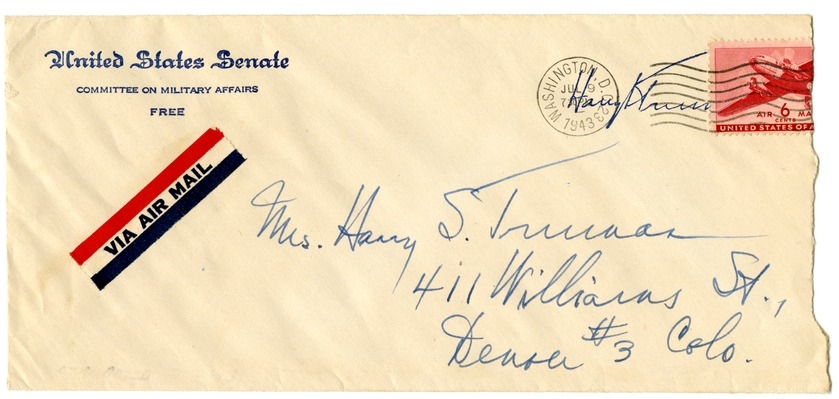 United States Senate
COMMITTEE ON MILITARY AFFAIRS
FREE
WASHINGTON, D.C.
JUL 9
1943
Harry S Trum
AIR 6 MA
CENTS
UNITED STATES OF A
VIA AIR MAIL
Mrs. Harry S. Truman
411 Williams St.,
Denver #3 Colo.